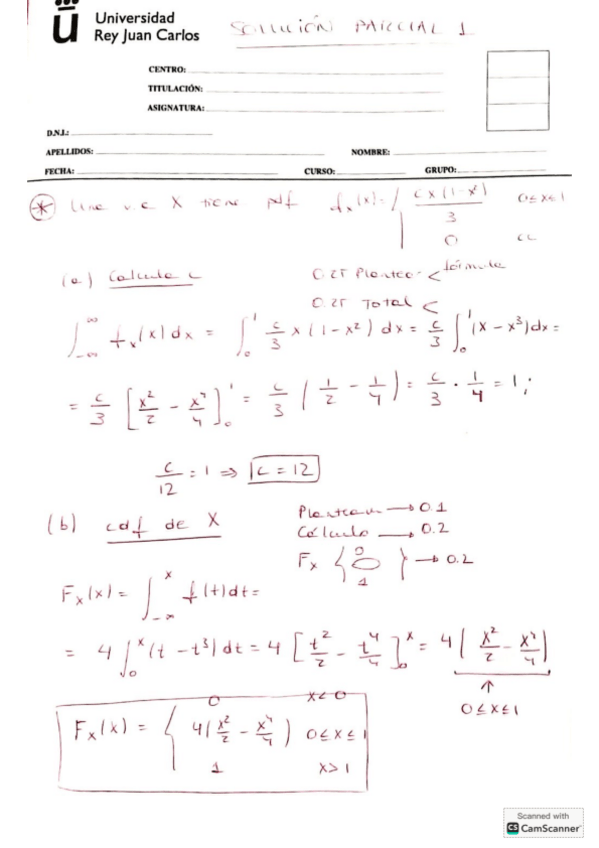 Universidad
Rey Juan Carlos
SOLUCIÓN PARCIAL 1
CENTRO:
TITULACIÓN:
ASIGNATURA:
D.N.I.:
APELLIDOS: NOMBRE:
FECHA: CURSO: GRUPO:
* Una v.c X tiene pdf f_x(x) = { cx(1-x²)/3 0≤x≤1
0 cc
(a) Calcula c 0.25 Planteo < fórmula
0.25 Total <
∫_{-∞}^{∞} f_x(x) dx = ∫_0^1 c/3 x(1-x²) dx = c/3 ∫_0^1 (x-x³) dx =
= c/3 [x²/2 - x⁴/4]_0^1 = c/3 (1/2 - 1/4) = c/3 · 1/4 = 1;
c/12 = 1 ⇒ c = 12
(b) cdf de X
Planteam → 0.1
Cálculo → 0.2
F_x { 0 1 } → 0.2
F_x(x) = ∫_{-∞}^x f(t) dt =
= 4 ∫_0^x (t - t³) dt = 4 [t²/2 - t⁴/4]_0^x = 4 (x²/2 - x⁴/4)
↑
0≤x≤1
F_x(x) = { 0 x<0
4(x²/2 - x⁴/4) 0≤x≤1
1 x>1
Scanned with
CS CamScanner